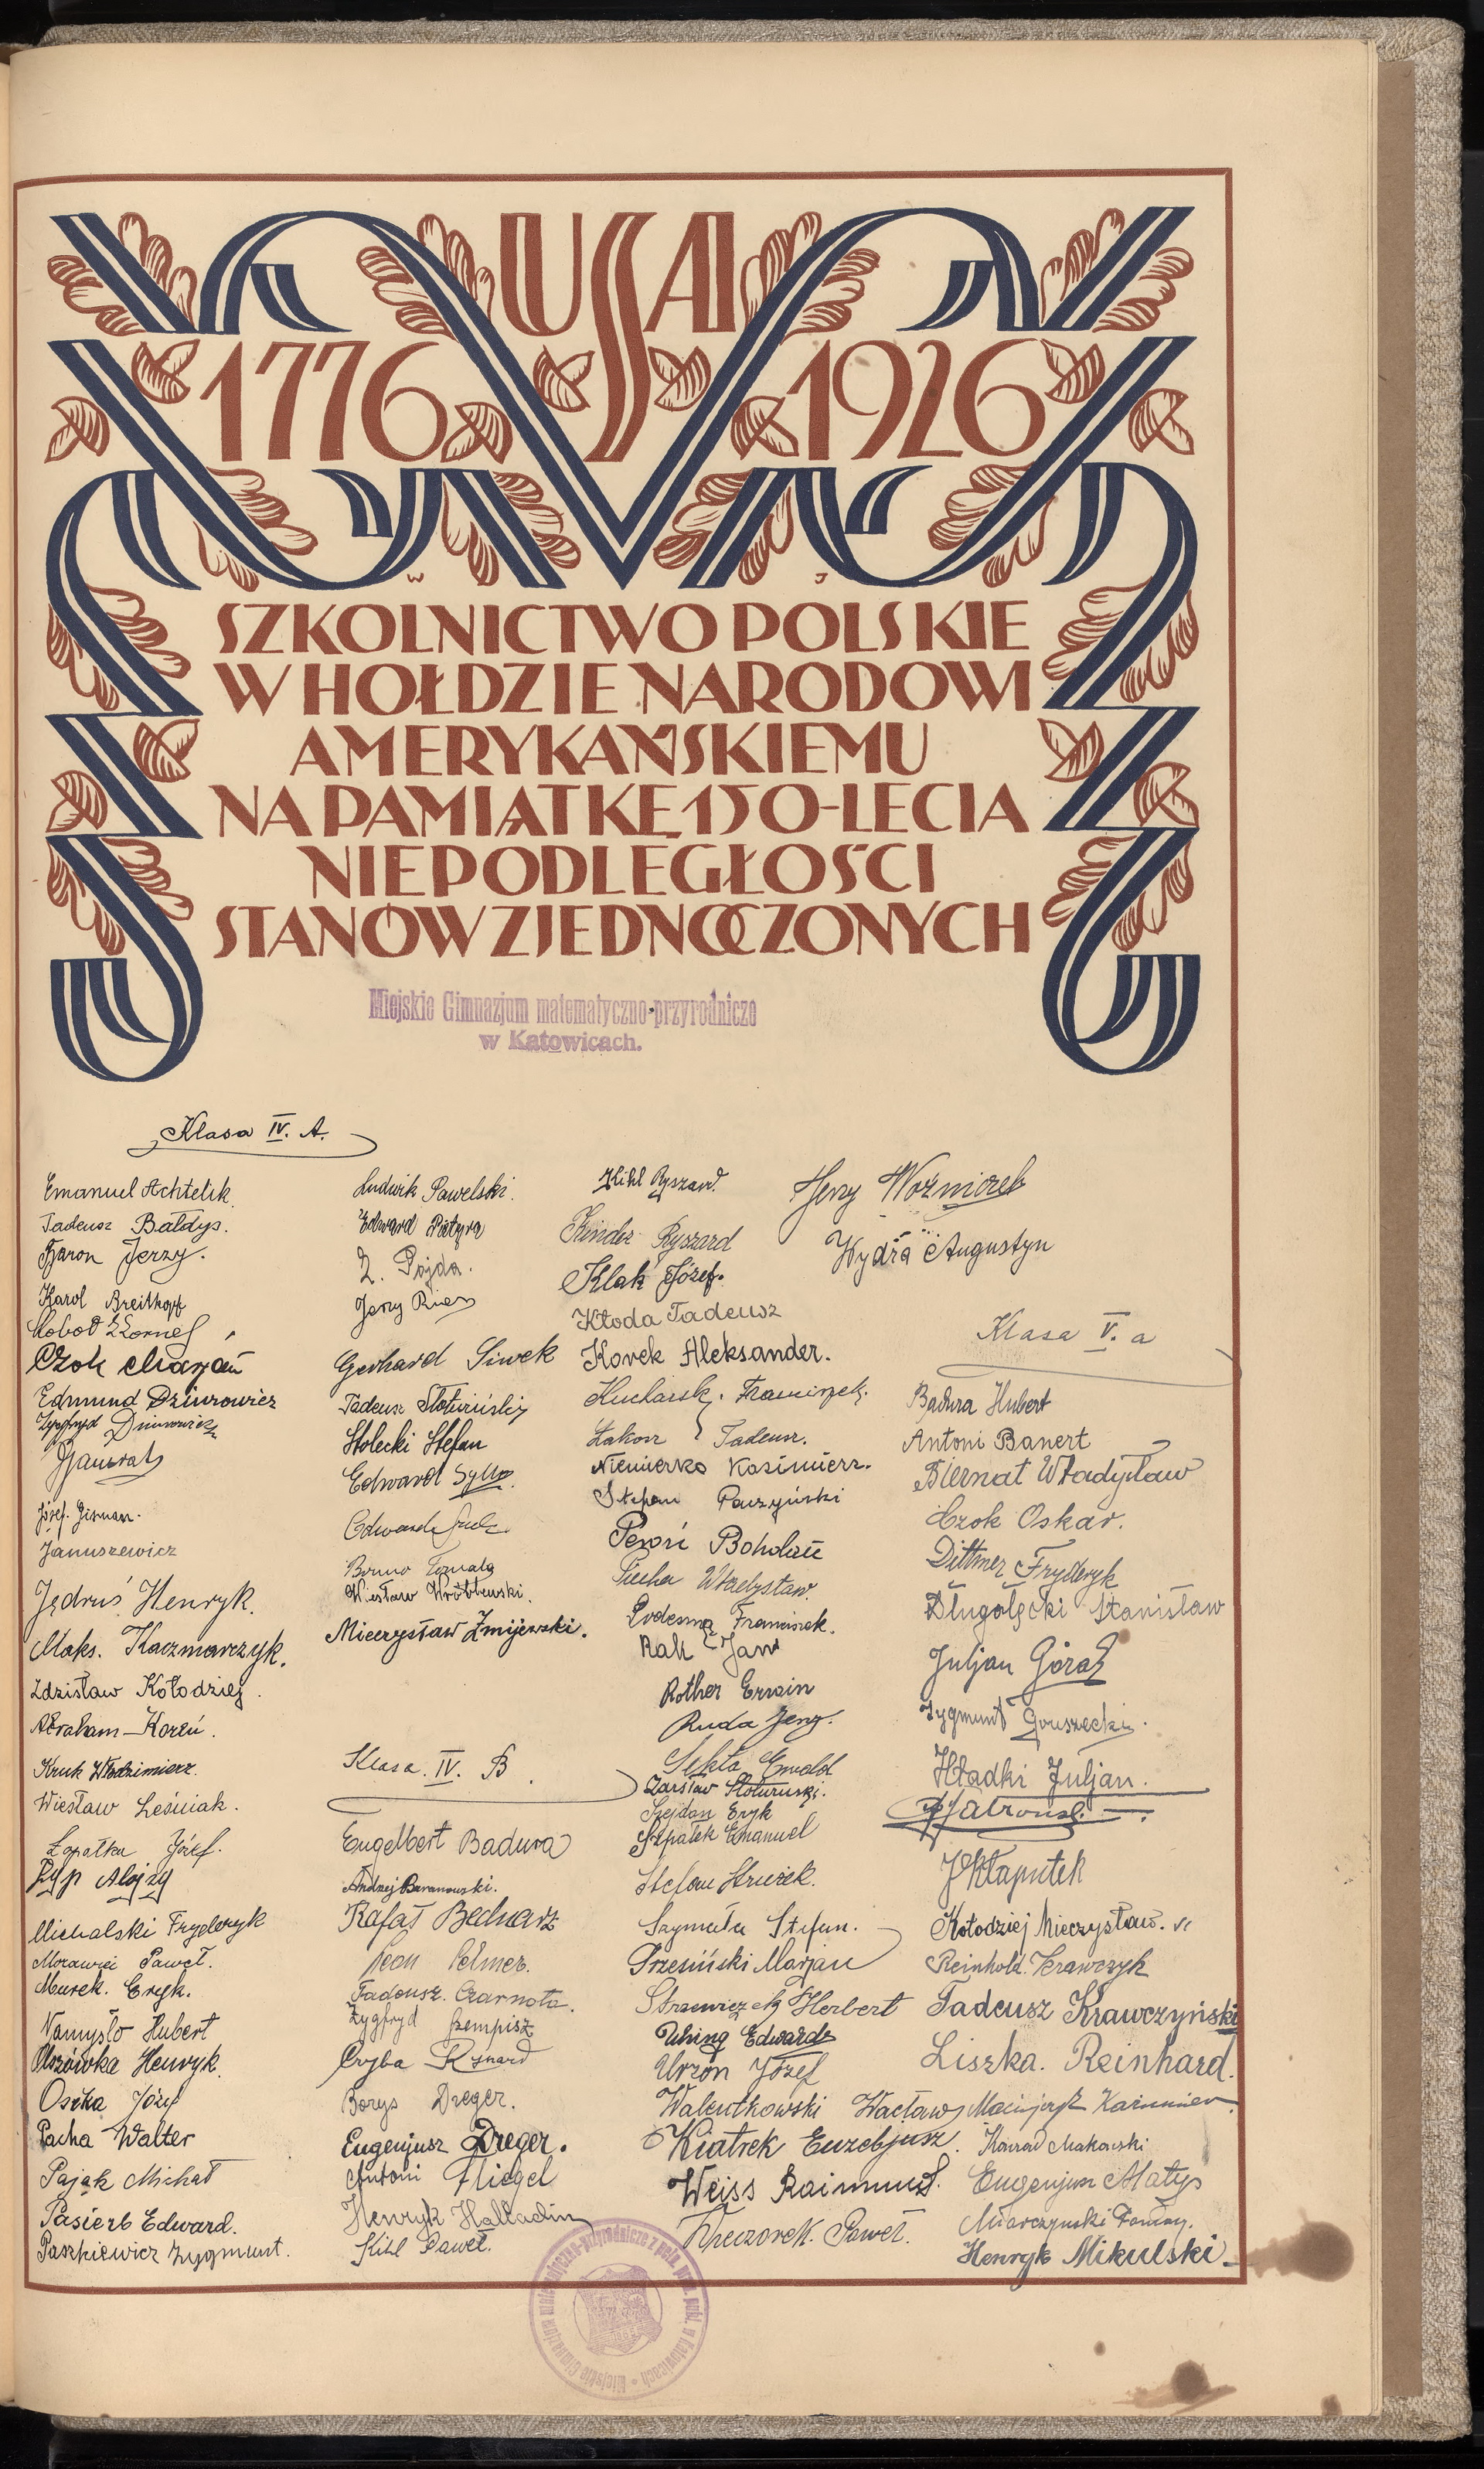 USA
1776 1926
W J
SZKOLNICTWO POLSKIE
W HOŁDZIE NARODOWI
AMERYKAŃSKIEMU
NA PAMIĄTKĘ 150-LECIA
NIEPODLEGŁOŚCI
STANÓW ZJEDNOCZONYCH
Miejskie Gimnazjum matematyczno-przyrodnicze
w Katowicach.
Klasa IV. A.
Emanuel Achtelik
Tadeusz Bałdys.
Baron Jerzy.
Karol Breitkopf
Kornel
Czok Marjan
Edmund Dziurowicz
Zygfryd Dziurowicz
Józef
Januszewicz
Jędruś Henryk.
Maks. Kaczmarczyk.
Zdzisław Kołodziej.
Abraham Koreń.
Kruk Włodzimierz.
Wiesław Leśniak.
Łopatka Józef.
Łyp Alojzy
Michalski Fryderyk
Morawiec Paweł.
Murek. Eryk.
Namysło Hubert
Olszówka Henryk.
Osika Józef
Pacha Walter
Pająk Michał
Pasierb Edward.
Paszkiewicz Zygmunt.
Ludwik Pawelski.
Edward Patyra
Z. Pojda.
Jerzy
Gerhard Siwek
Tadeusz
Stolecki Stefan
Edward
Edward
Bruno
Wiesław Wróblewski.
Mieczysław Żmijewski.
Klasa. IV. B.
Engelbert Badura
Andrzej Baranowski.
Rafał Bednarz
Leon
Tadeusz. Czarnota.
Zygfryd Czempisz
Cryba
Borys Dreger.
Eugenjusz Dreger.
Antoni Fliegel
Henryk Halladin
Kihl Paweł.
Kihl Ryszard.
Kinder Ryszard
Klak Józef.
Kłoda Tadeusz
Korek Aleksander.
Kucharsk. Franciszek.
Łakosz Tadeusz.
Niemierko Kazimierz.
Stefan Paczyński
Peroń Bohdan
Piecha Władysław.
Podesma Franciszek.
Rak Jan
Rother Erwin
Ruda Jerzy.
Ewald
Szejdan Eryk
Szpałek Emanuel
Stefan
Szymała Stefan.
Trzesiński Marjan
Herbert
Uhing Edward
Urzon Józef
Walentkowski Wacław
Kiatrek Euzebjusz.
Weiss Raimund.
Wieczorek. Paweł.
Jerzy Woźniczek
Wydra Augustyn
Klasa V. a
Badura Hubert
Antoni Banert
Biernat Władysław
Czok Oskar.
Dittmer Fryderyk
Długołęcki Stanisław
Juljan Góral
Zygmunt Gruszecki.
Hładki Juljan.
J Kłaputek
Kołodziej Mieczysław.
Reinhold. Krawczyk
Tadeusz Krawczyński
Liszka. Reinhard.
Maciejczyk Kazimierz
Konrad Makowski
Eugenjusz Matys
Henryk Mikulski